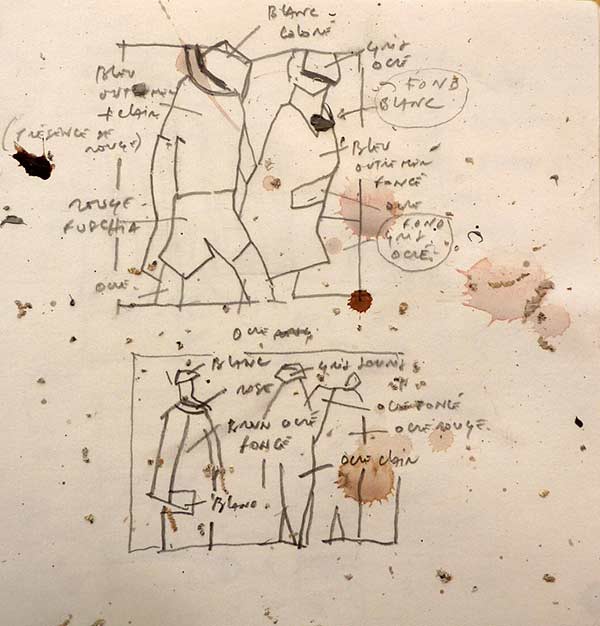 BLANC
COLORÉ
GRIS
OCRÉ
BLEU
OUTREMER
+ CLAIR
(PRÉSENCE DE
ROUGE)
FOND
BLANC
BLEU
OUTREMER
FONCÉ
OCRE
ROUGE
FUCHIA
FOND
GRIS
OCRÉ
OCRE
OCRE
BLANC
ROSE
BRUN OCRÉ
FONCÉ
BLANC
GRIS
OCRE FONCÉ
OCRE ROUGE
OCRE CLAIR